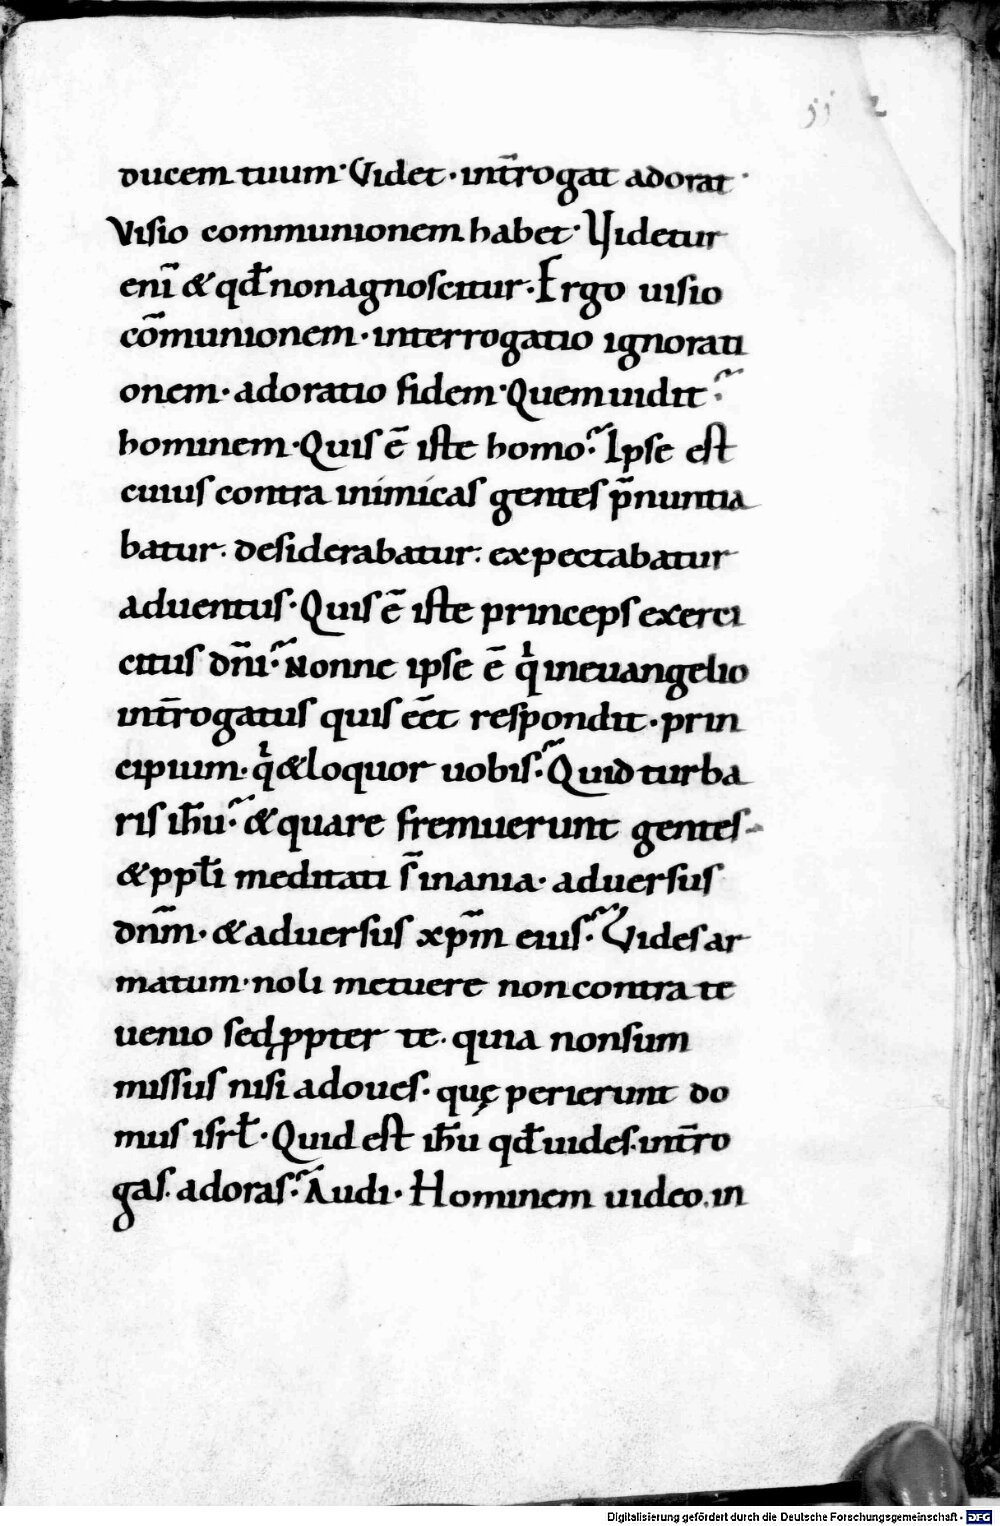 ij 2
ducem tuum· Videt · int̅rogat adorat·
Visio communionem habet· Videtur
eni̅ & qđ non agnoscitur· Ergo uisio
co̅munionem · interrogatio ignorati
onem· adoratio fidem· Quem uidit?
hominem· Quis e̅ iste homo? Ipse est
cuius contra inimicas gentes p̅nuntia
batur· desiderabatur· expectabatur
aduentus· Quis e̅ iste princeps exerci
citus dn̅i? Nonne ipse e̅ qͥ in euangelio
int̅rogatus quis ee̅t respondit· prin
cipium· qͥ & loquor uobis? Quid turba
ris ih̅u? & quare fremuerunt gentes
& ppłi meditati s̅ inania· aduersus
dn̅m· & aduersus xp̅m eius? Vides ar
matum· noli metuere non contra te
uenio sed ꝓpter te· quia non sum
missus nisi ad oues· quę perierunt do
mus isrł· Quid est ih̅u qđ uides· int̅ro
gas· adoras? Audi· Hominem uideo· in
Digitalisierung gefördert durch die Deutsche Forschungsgemeinschaft - DFG